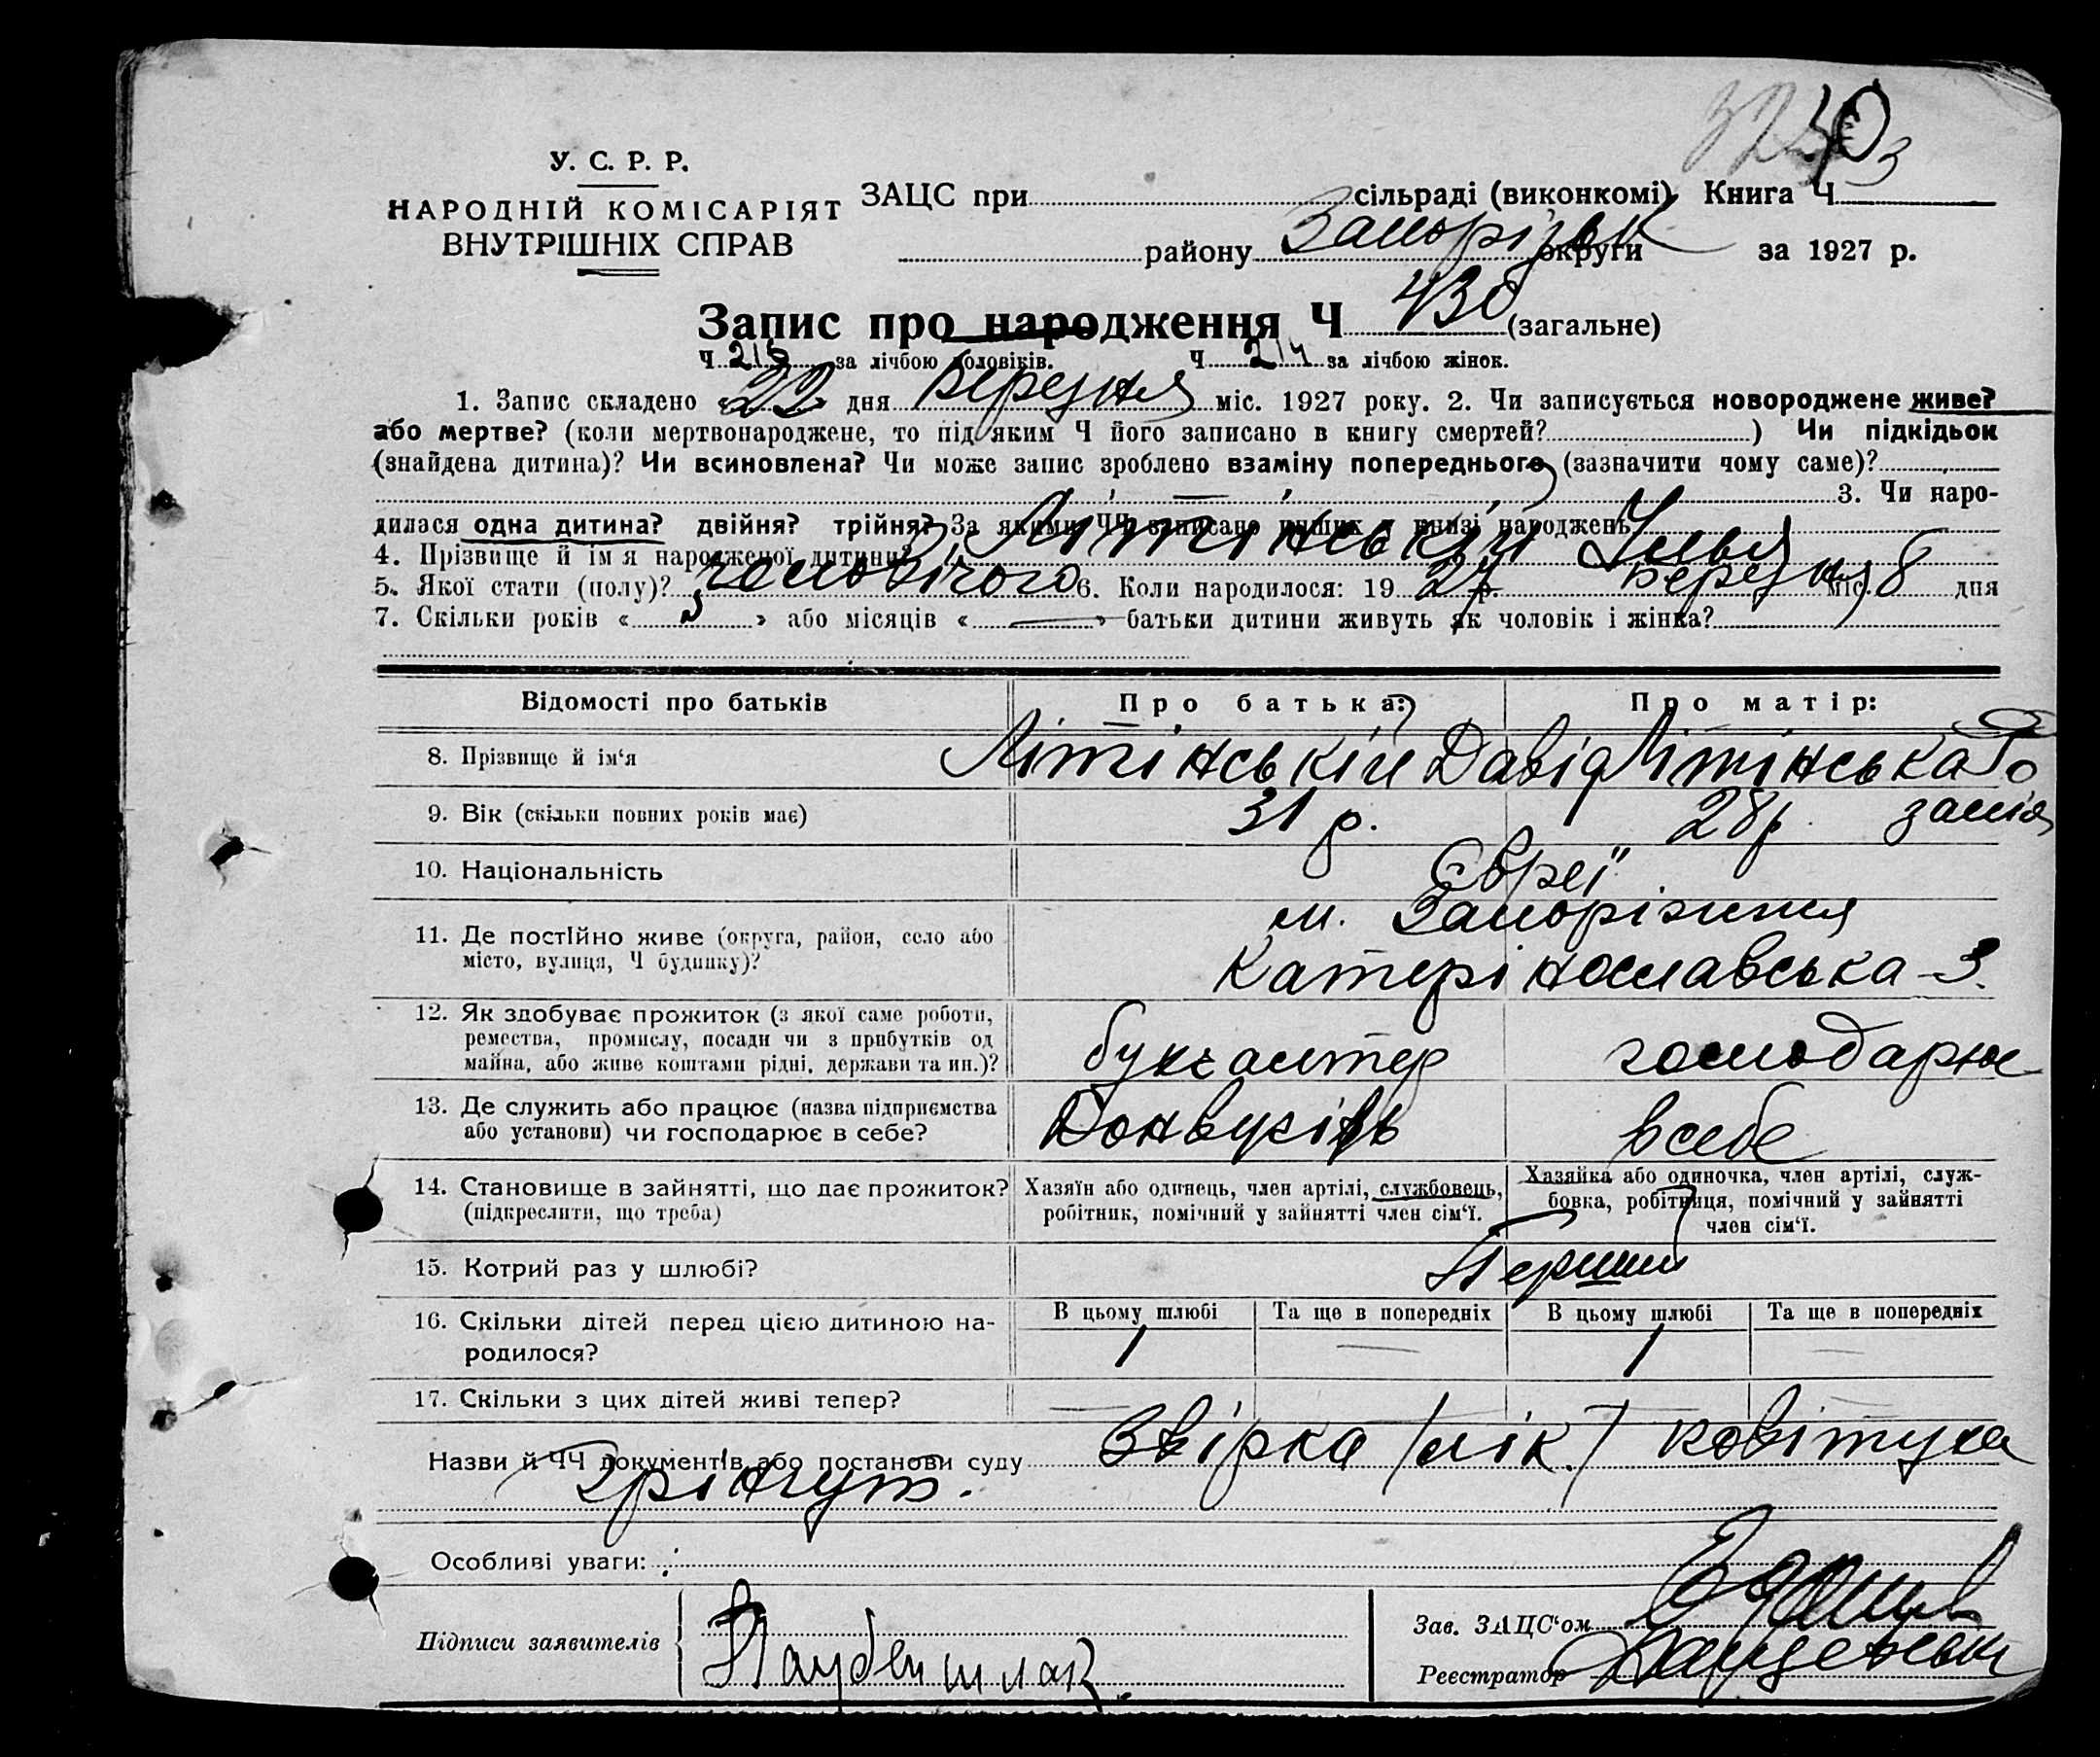 У. С. Р. Р.
НАРОДНІЙ КОМІСАРІЯТ
ВНУТРІШНІХ СПРАВ
ЗАЦС при сільраді (виконкомі) Книга Ч 3
району Запорізьк округи за 1927 р.
Запис про народження Ч 430 (загальне)
Ч 216 за лічбою чоловіків. Ч 214 за лічбою жінок.
1. Запис складено «22» дня Березня міс. 1927 року. 2. Чи записується новороджене живе?
або мертве? (коли мертвонароджене, то під яким Ч його записано в книгу смертей? ) Чи підкідьок
(знайдена дитина)? Чи всиновлена? Чи може запис зроблено взаміну попереднього (зазначити чому саме)?
3. Чи наро-
дилася одна дитина? двійня? трійня? За якими ЧЧ записано инших у книзі народжень
4. Прізвище й ім'я народженої дитини? Літінській Ілья
5. Якої стати (полу)? чоловічого 6. Коли народилося: 1927 р. Березня міс. 8 дня
7. Скільки років « 3 » або місяців « — » батьки дитини живуть як чоловік і жінка?
Відомості про батьків Про батька: Про матір:
8. Прізвище й ім'я Літінській Давід Літінська Ро
9. Вік (скільки повних років має) 31 р. 28 р. залія
10. Національність Євреї
11. Де постійно живе (округа, район, село або м. Запоріжжя
місто, вулиця, Ч будинку)? Катерінославська - 3.
12. Як здобуває прожиток (з якої саме роботи,
ремества, промислу, посади чи з прибутків од
майна, або живе коштами рідні, держави та ин.)? бухгалтер господарює
13. Де служить або працює (назва підприємства
або установи) чи господарює в себе? Донвугіль в себе
14. Становище в зайнятті, що дає прожиток? Хазяїн або одинець, член артілі, службовець, Хазяйка або одиночка, член артілі, служ-
(підкреслити, що треба) робітник, помічний у зайнятті член сім'ї. бовка, робітниця, помічний у зайнятті
член сім'ї.
15. Котрий раз у шлюбі? Перший
16. Скільки дітей перед цією дитиною на- В цьому шлюбі Та ще в попередніх В цьому шлюбі Та ще в попередніх
родилося? 1 — 1 —
17. Скільки з цих дітей живі тепер? —
Назви й ЧЧ документів або постанови суду Звірка /лік./ повітуха
Грінгут.
Особливі уваги:
Підписи заявителів
Зав. ЗАЦС'ом
Реєстратор